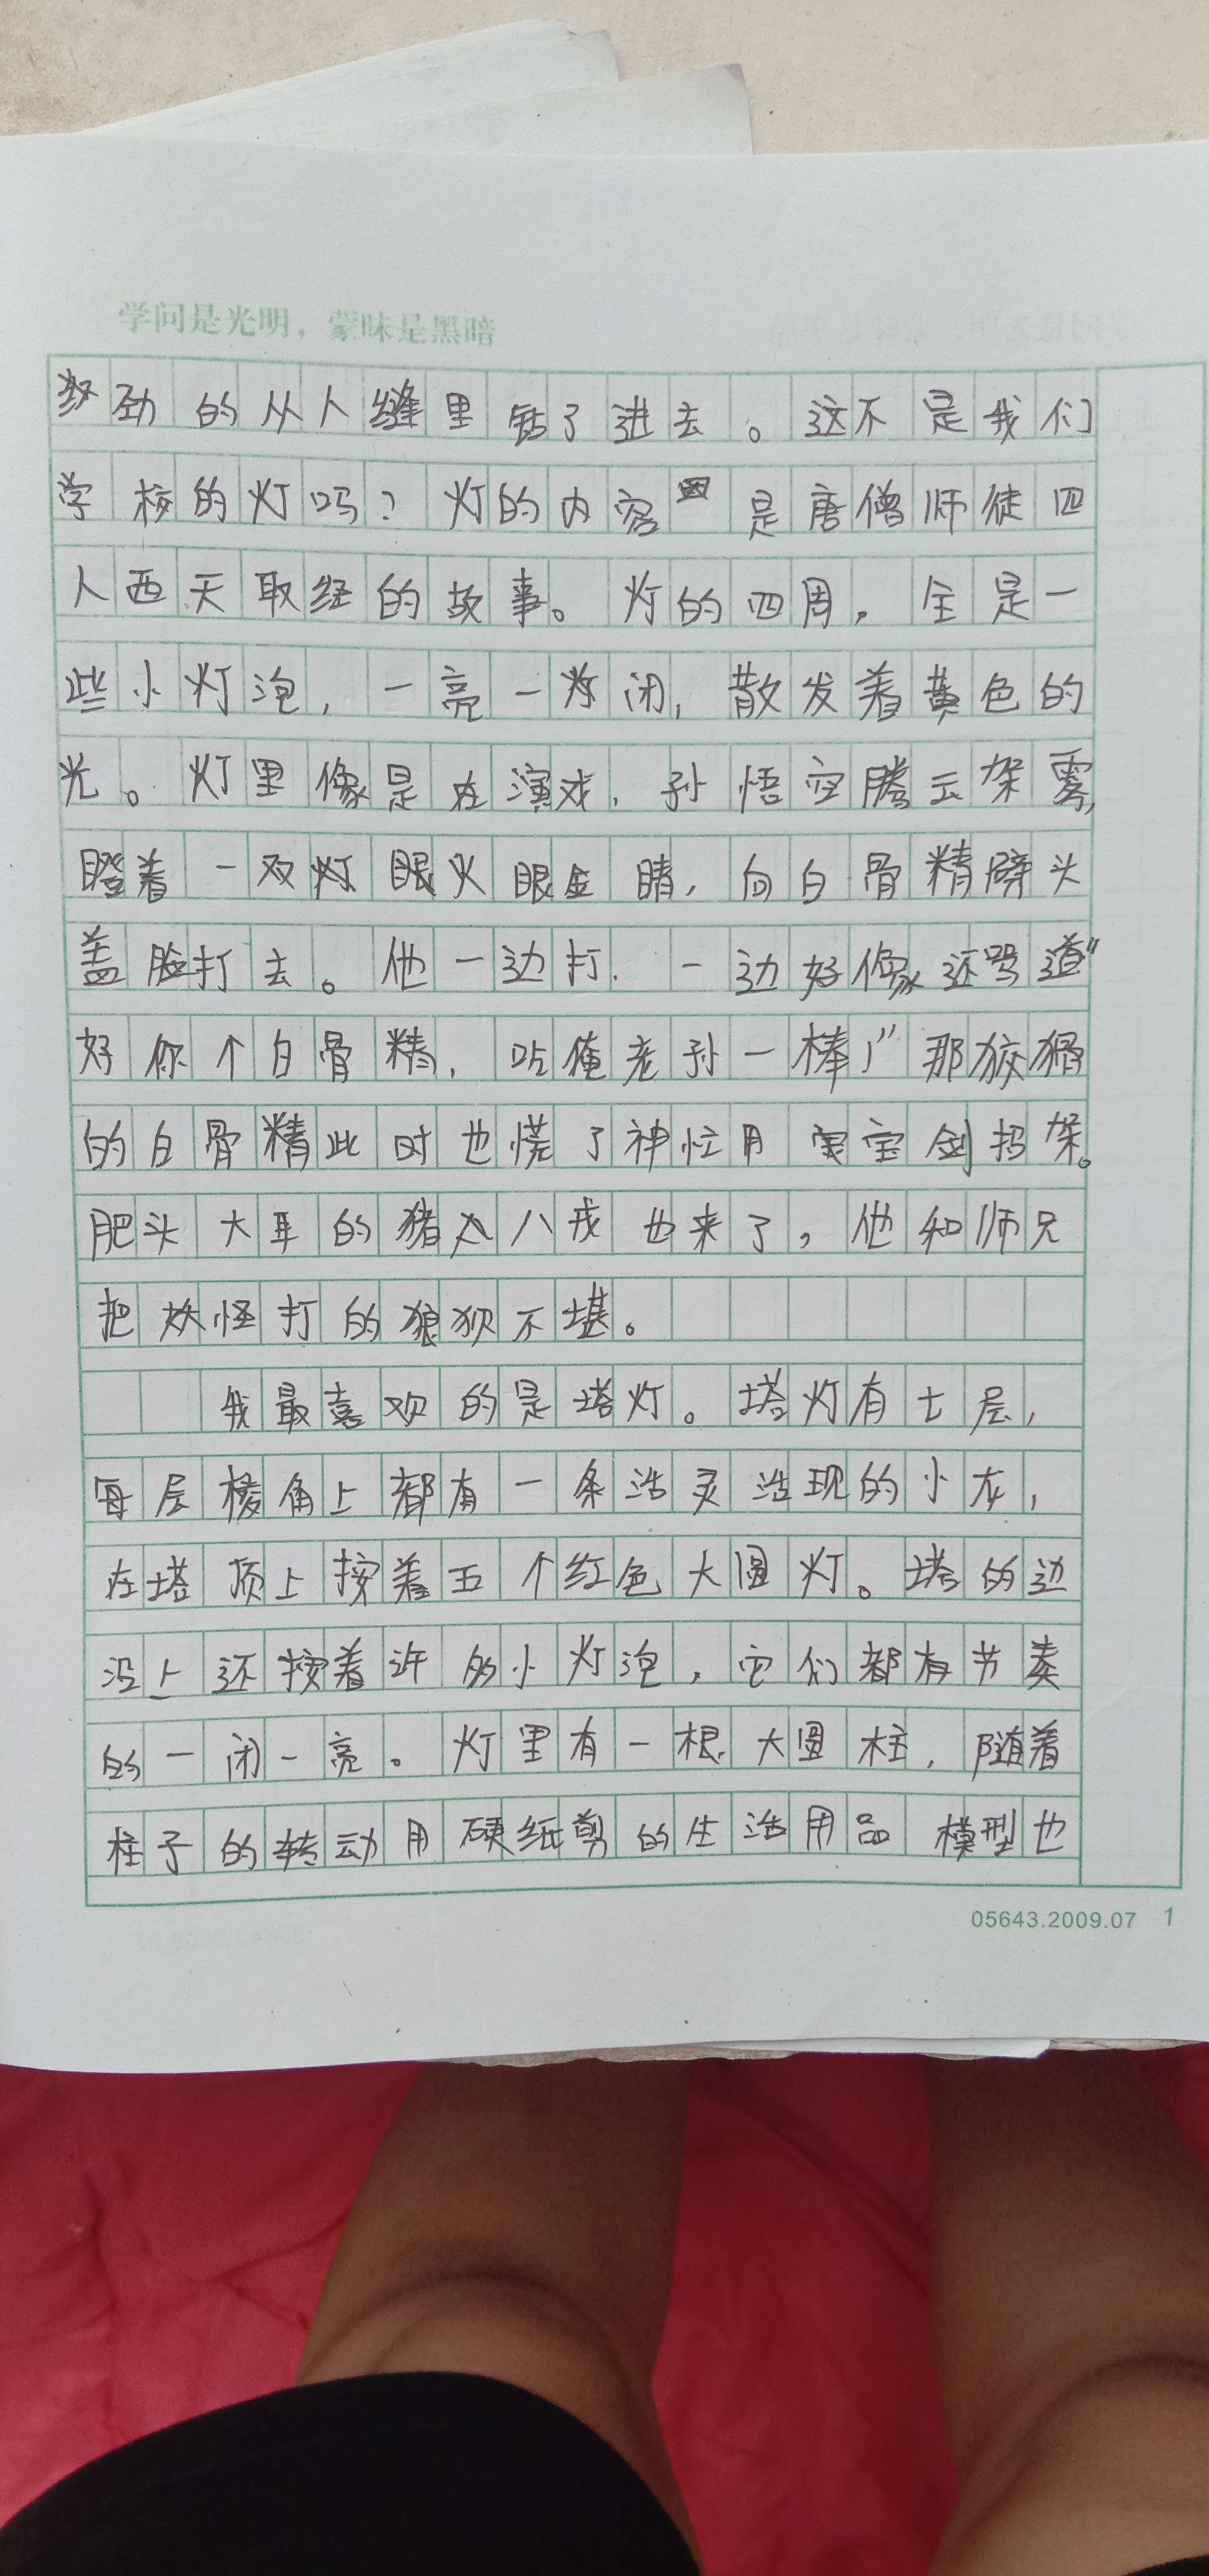 学问是光明，蒙昧是黑暗
劲的从人缝里钻了进去。这不是我们
学校的灯吗？灯的内容是唐僧师徒四
人西天取经的故事。灯的四周，全是一
些小灯泡，一亮一闭，散发着黄色的
光。灯里像是在演戏，孙悟空腾云架雾，
瞪着一双火眼金睛，向白骨精劈头
盖脸打去。他一边打，一边好像还骂道"
好你个白骨精，吃俺老孙一棒！"那狡猾
的白骨精此时也慌了神忙用宝剑招架。
肥头大耳的猪八戒也来了，他和师兄
把妖怪打的狼狈不堪。
我最喜欢的是塔灯。塔灯有七层，
每层棱角上都有一条活灵活现的小龙，
在塔顶上按着五个红色大圆灯。塔的边
沿上还按着许的小灯泡，它们都有节奏
的一闭一亮。灯里有一根大圆柱，随着
柱子的转动用硬纸剪的生活用品模型也
05643.2009.07 1